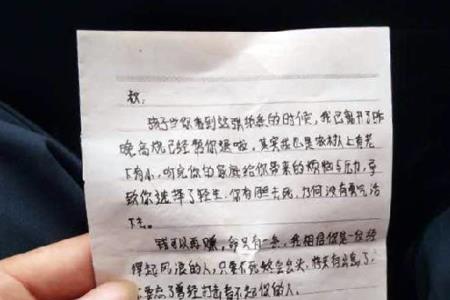 孩子当你看到这张纸条的时候,我已离开了昨
晚高烧已经帮你退啦,其实我也是农村人上有老
下有小,听完你的家庭给你带来的烦恼与压力,导
致你选择了轻生,你有胆去死,为何没有勇气活
下去。
钱可以再赚,命只有一条,我相信你是一位经
得起风浪的人,只要不死终会出头,将来有出息了,
忘了曾经打击看不起你的人